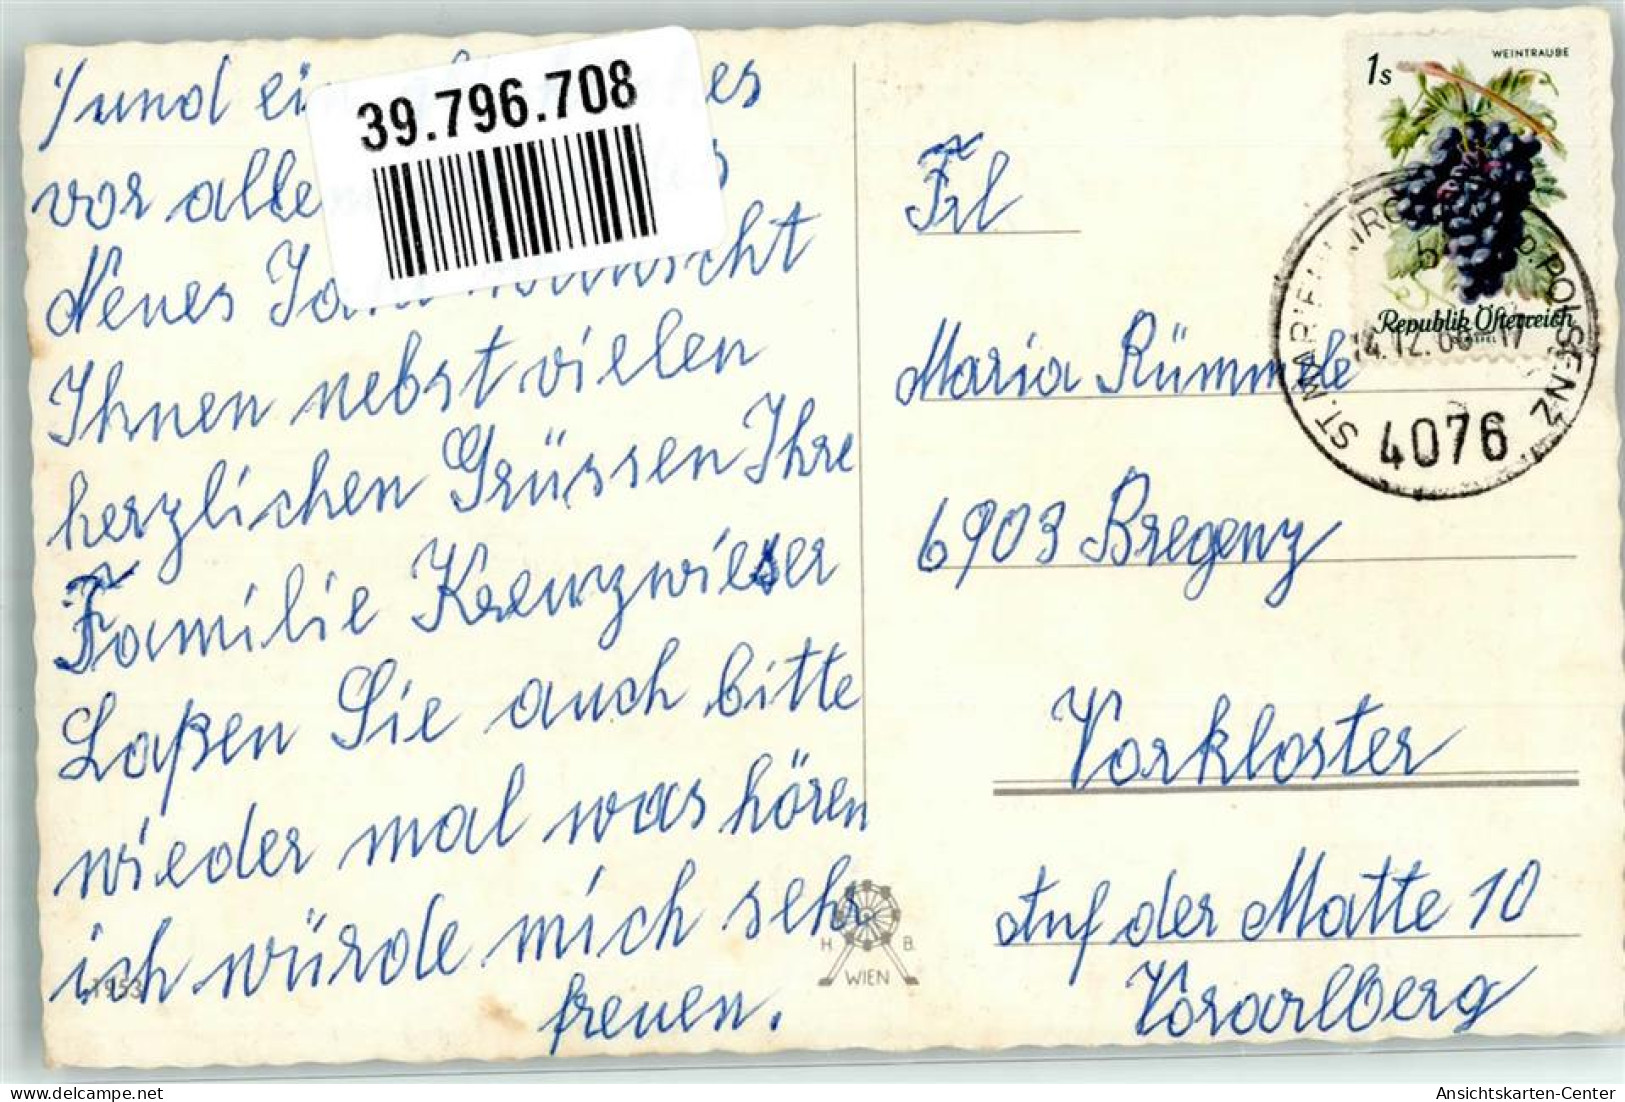 39.796.708
und
vor alle
Neues
Ihnen nebst vielen
herzlichen Grüssen Ihre
Familie Krenzwieser
Laßen Sie auch bitte
wieder mal was hören
ich würde mich sehr
freuen.
1953
H. B.
WIEN
WEINTRAUBE
1s
Republik Österreich
ST. MARIENKIRCHEN
POLSENZ
4076
Frl
Maria Rümmele
6903 Bregenz
Vorkloster
Auf der Matte 10
Vorarlberg
delcampe.net
Ansichtskarten-Center